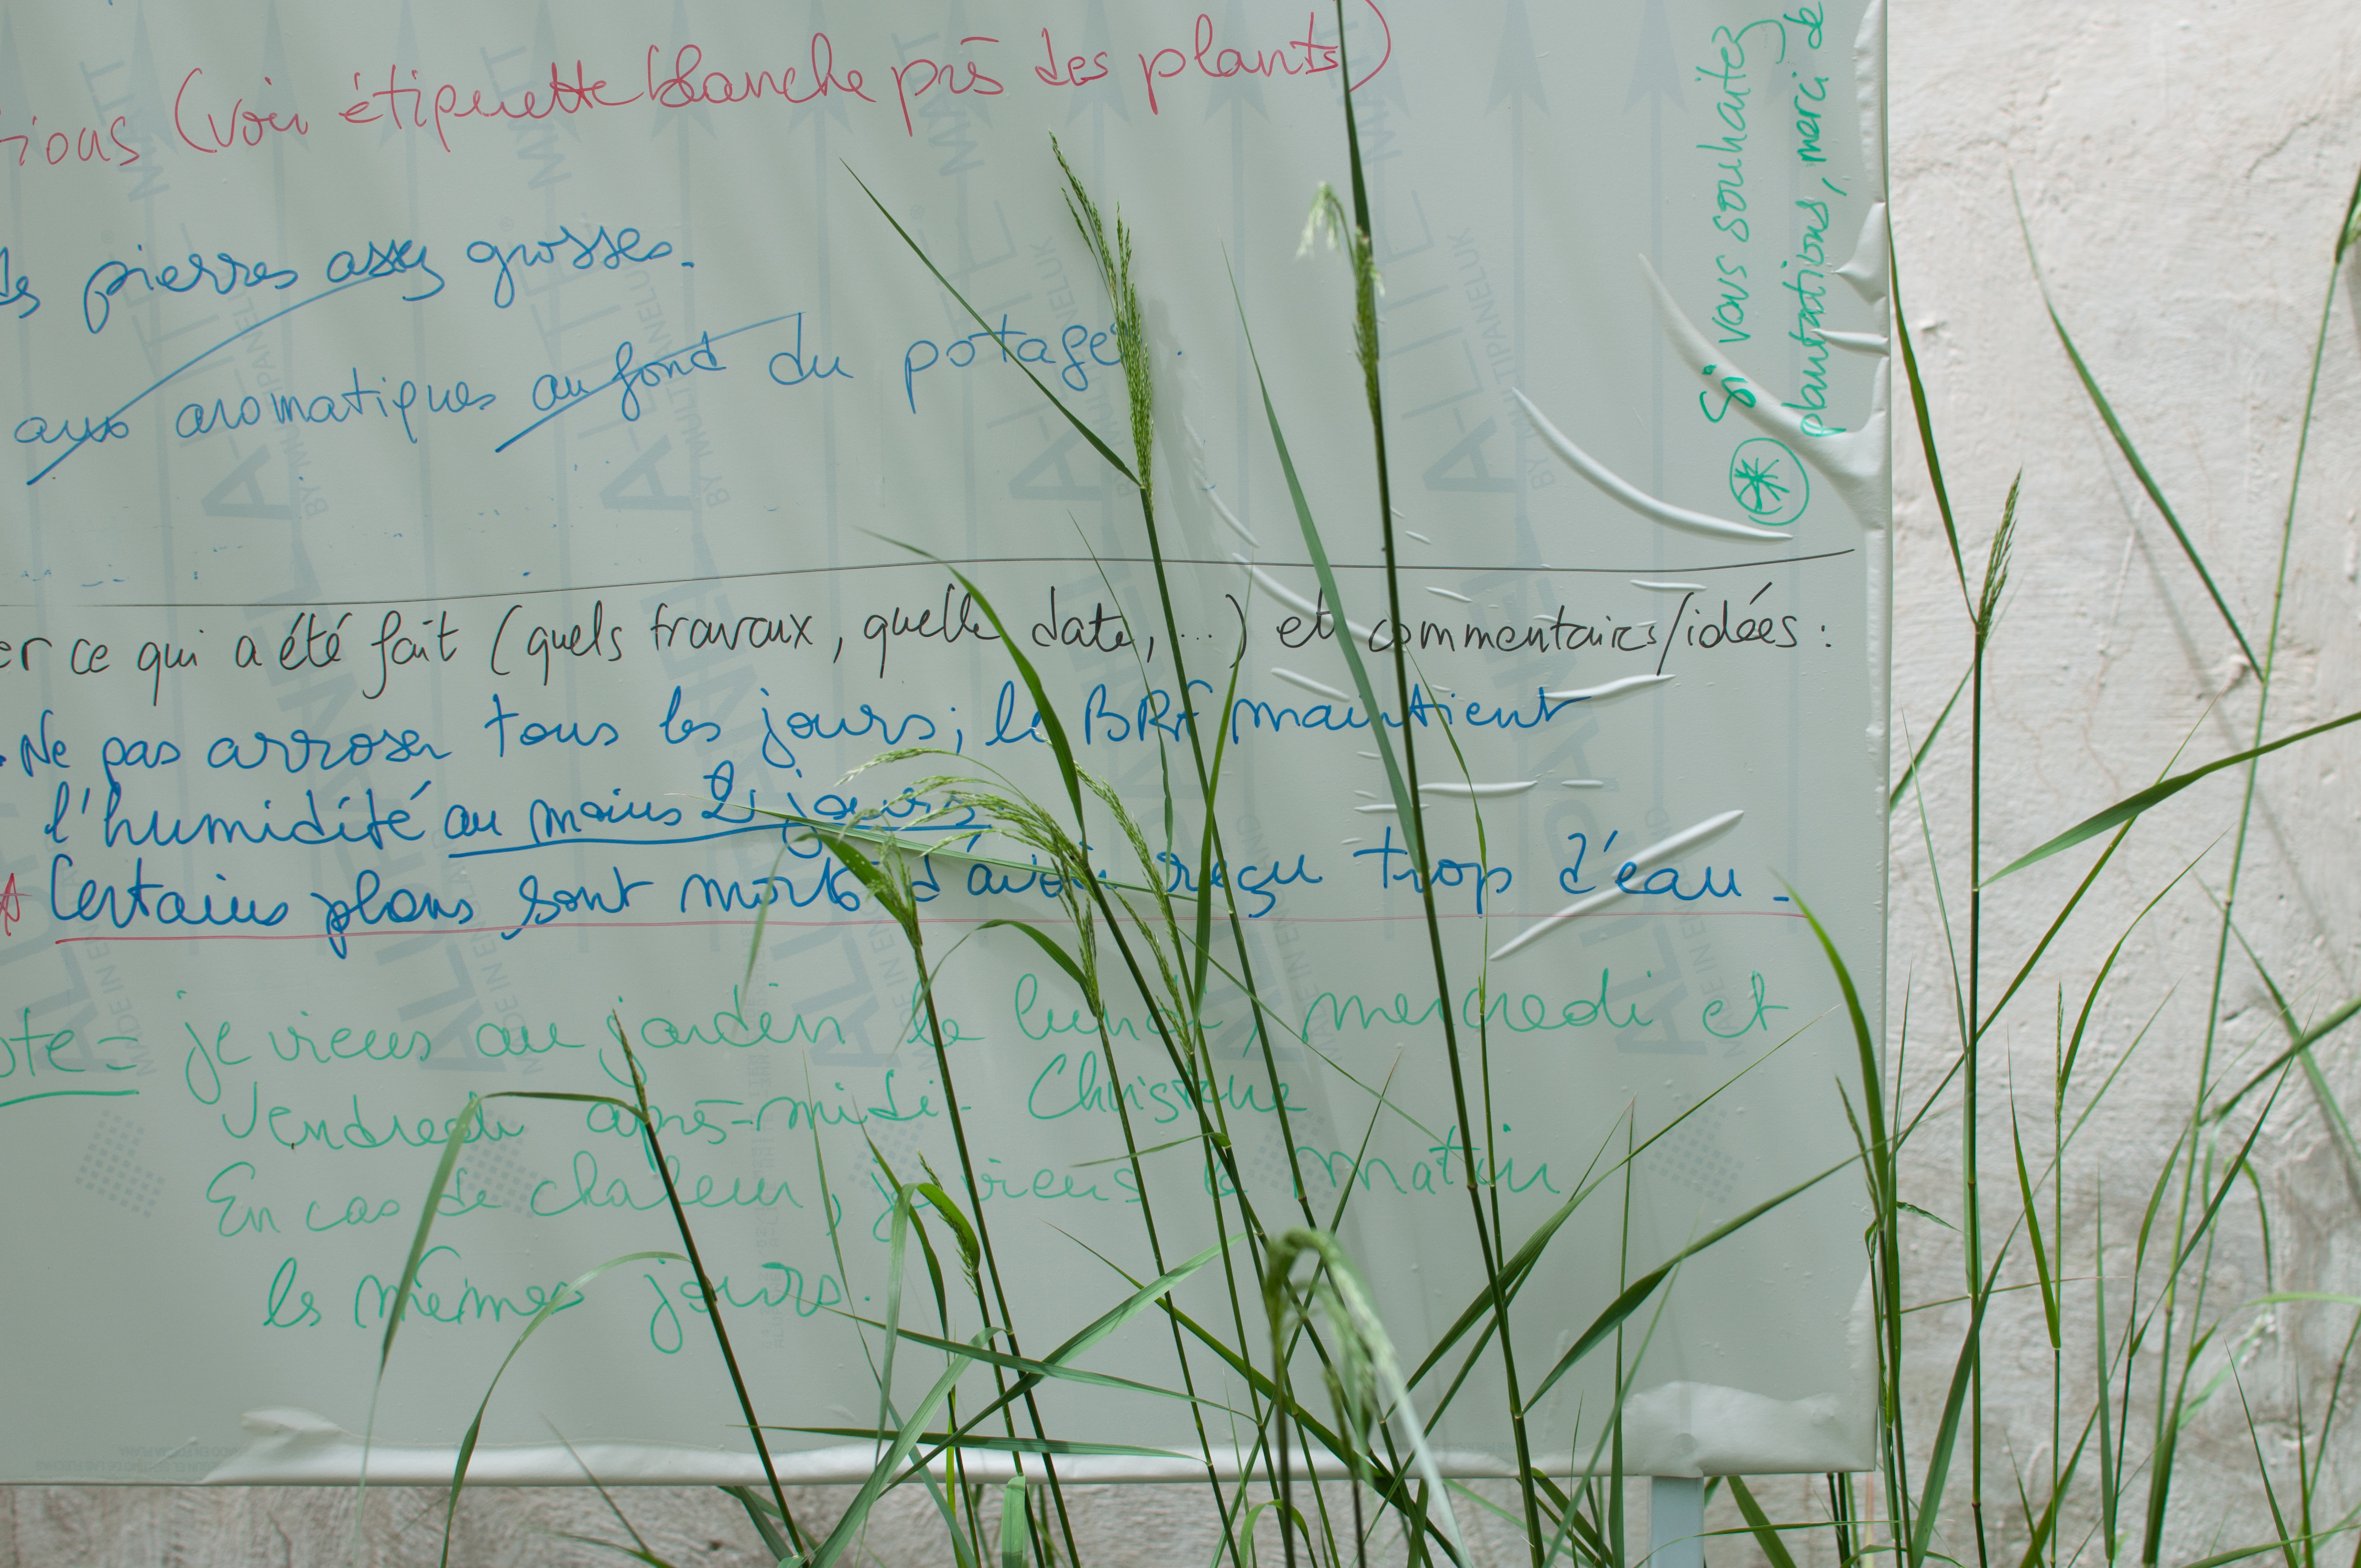 tions (voir étiquette blanche près des plants)
des pierres assez grosses.
aux aromatiques au fond du potager.
er ce qui a été fait (quels travaux, quelle date, ...) et commentaires/idées :
. Ne pas arroser tous les jours; le BRF maintient
l'humidité au moins 2 jours.
Certains plans sont morts d'avoir reçu trop d'eau.
ote = je viens au jardin le lundi, mercredi et
Vendredi après-midi - Christine
En cas de chaleur, je viens le matin
les mêmes jours.
Si vous souhaitez
plantations, merci de